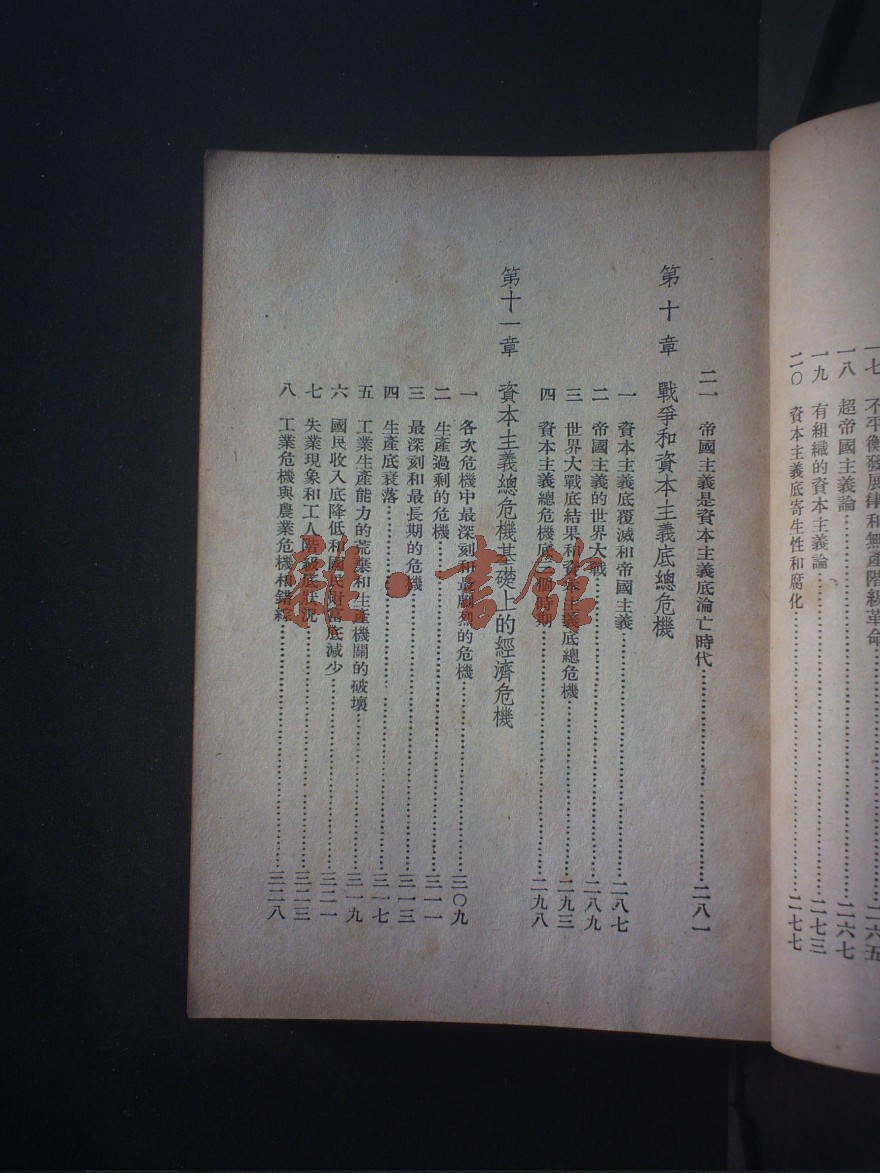 一七 不平衡發展律和無產階級革命……二六五
一八 超帝國主義論……二六七
一九 有組織的資本主義論……二七三
二〇 資本主義底寄生性和腐化……二七七
二一 帝國主義是資本主義底淪亡時代……二八一
第十章 戰爭和資本主義底總危機
一 資本主義底覆滅和帝國主義……二八七
二 帝國主義的世界大戰……二八九
三 世界大戰底結果和資本主義底總危機……二九三
四 資本主義總危機底三個時期……二九八
第十一章 資本主義總危機基礎上的經濟危機
一 各次危機中最深刻和最劇烈的危機……三〇九
二 生產過剩的危機……三一一
三 最深刻和最長期的危機……三一三
四 生產底衰落……三一七
五 工業生產能力的荒棄和生產機關的破壞……三一九
六 國民收入底降低和國民財富底減少……三二一
七 失業現象和工人階級底狀況……三二三
八 工業危機與農業危機相錯綜……三二八
雜·書館